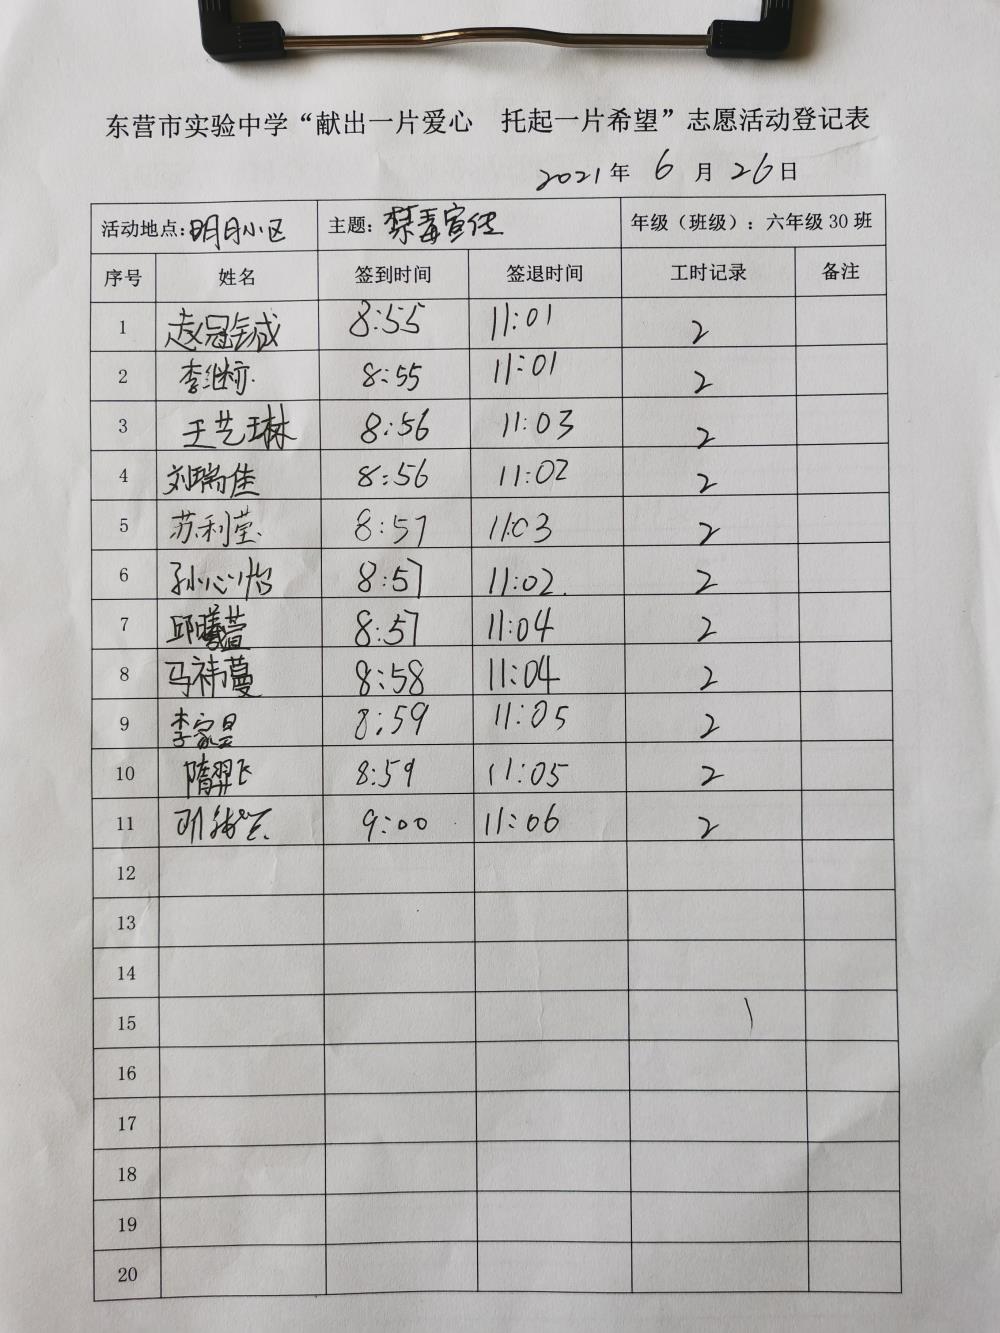 东营市实验中学“献出一片爱心 托起一片希望”志愿活动登记表
2021年 6 月 26日
活动地点:明月小区 主题:禁毒宣传 年级（班级）：六年级 30 班
序号 姓名 签到时间 签退时间 工时记录 备注
1 赵冠铖 8:55 11:01 2
2 李继 8:55 11:01 2
3 王艺琳 8:56 11:03 2
4 刘瑞佳 8:56 11:02 2
5 苏利莹 8:57 11:03 2
6 孙心怡 8:57 11:02 2
7 邱曦萱 8:57 11:04 2
8 马祎蔓 8:58 11:04 2
9 李家昊 8:59 11:05 2
10 隋羿飞 8:59 11:05 2
11 9:00 11:06 2
12
13
14
15
16
17
18
19
20